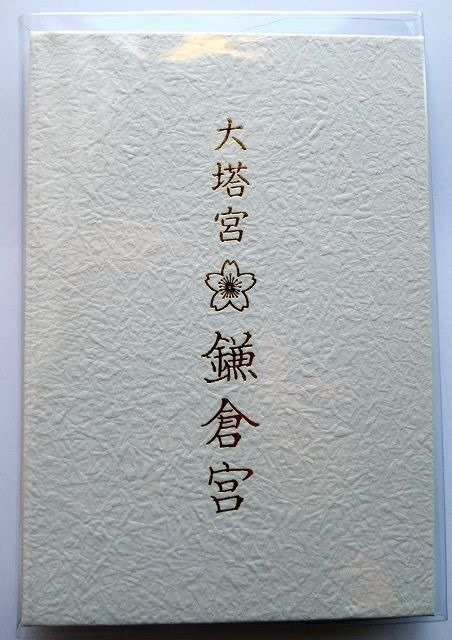 大塔宮
鎌倉宮